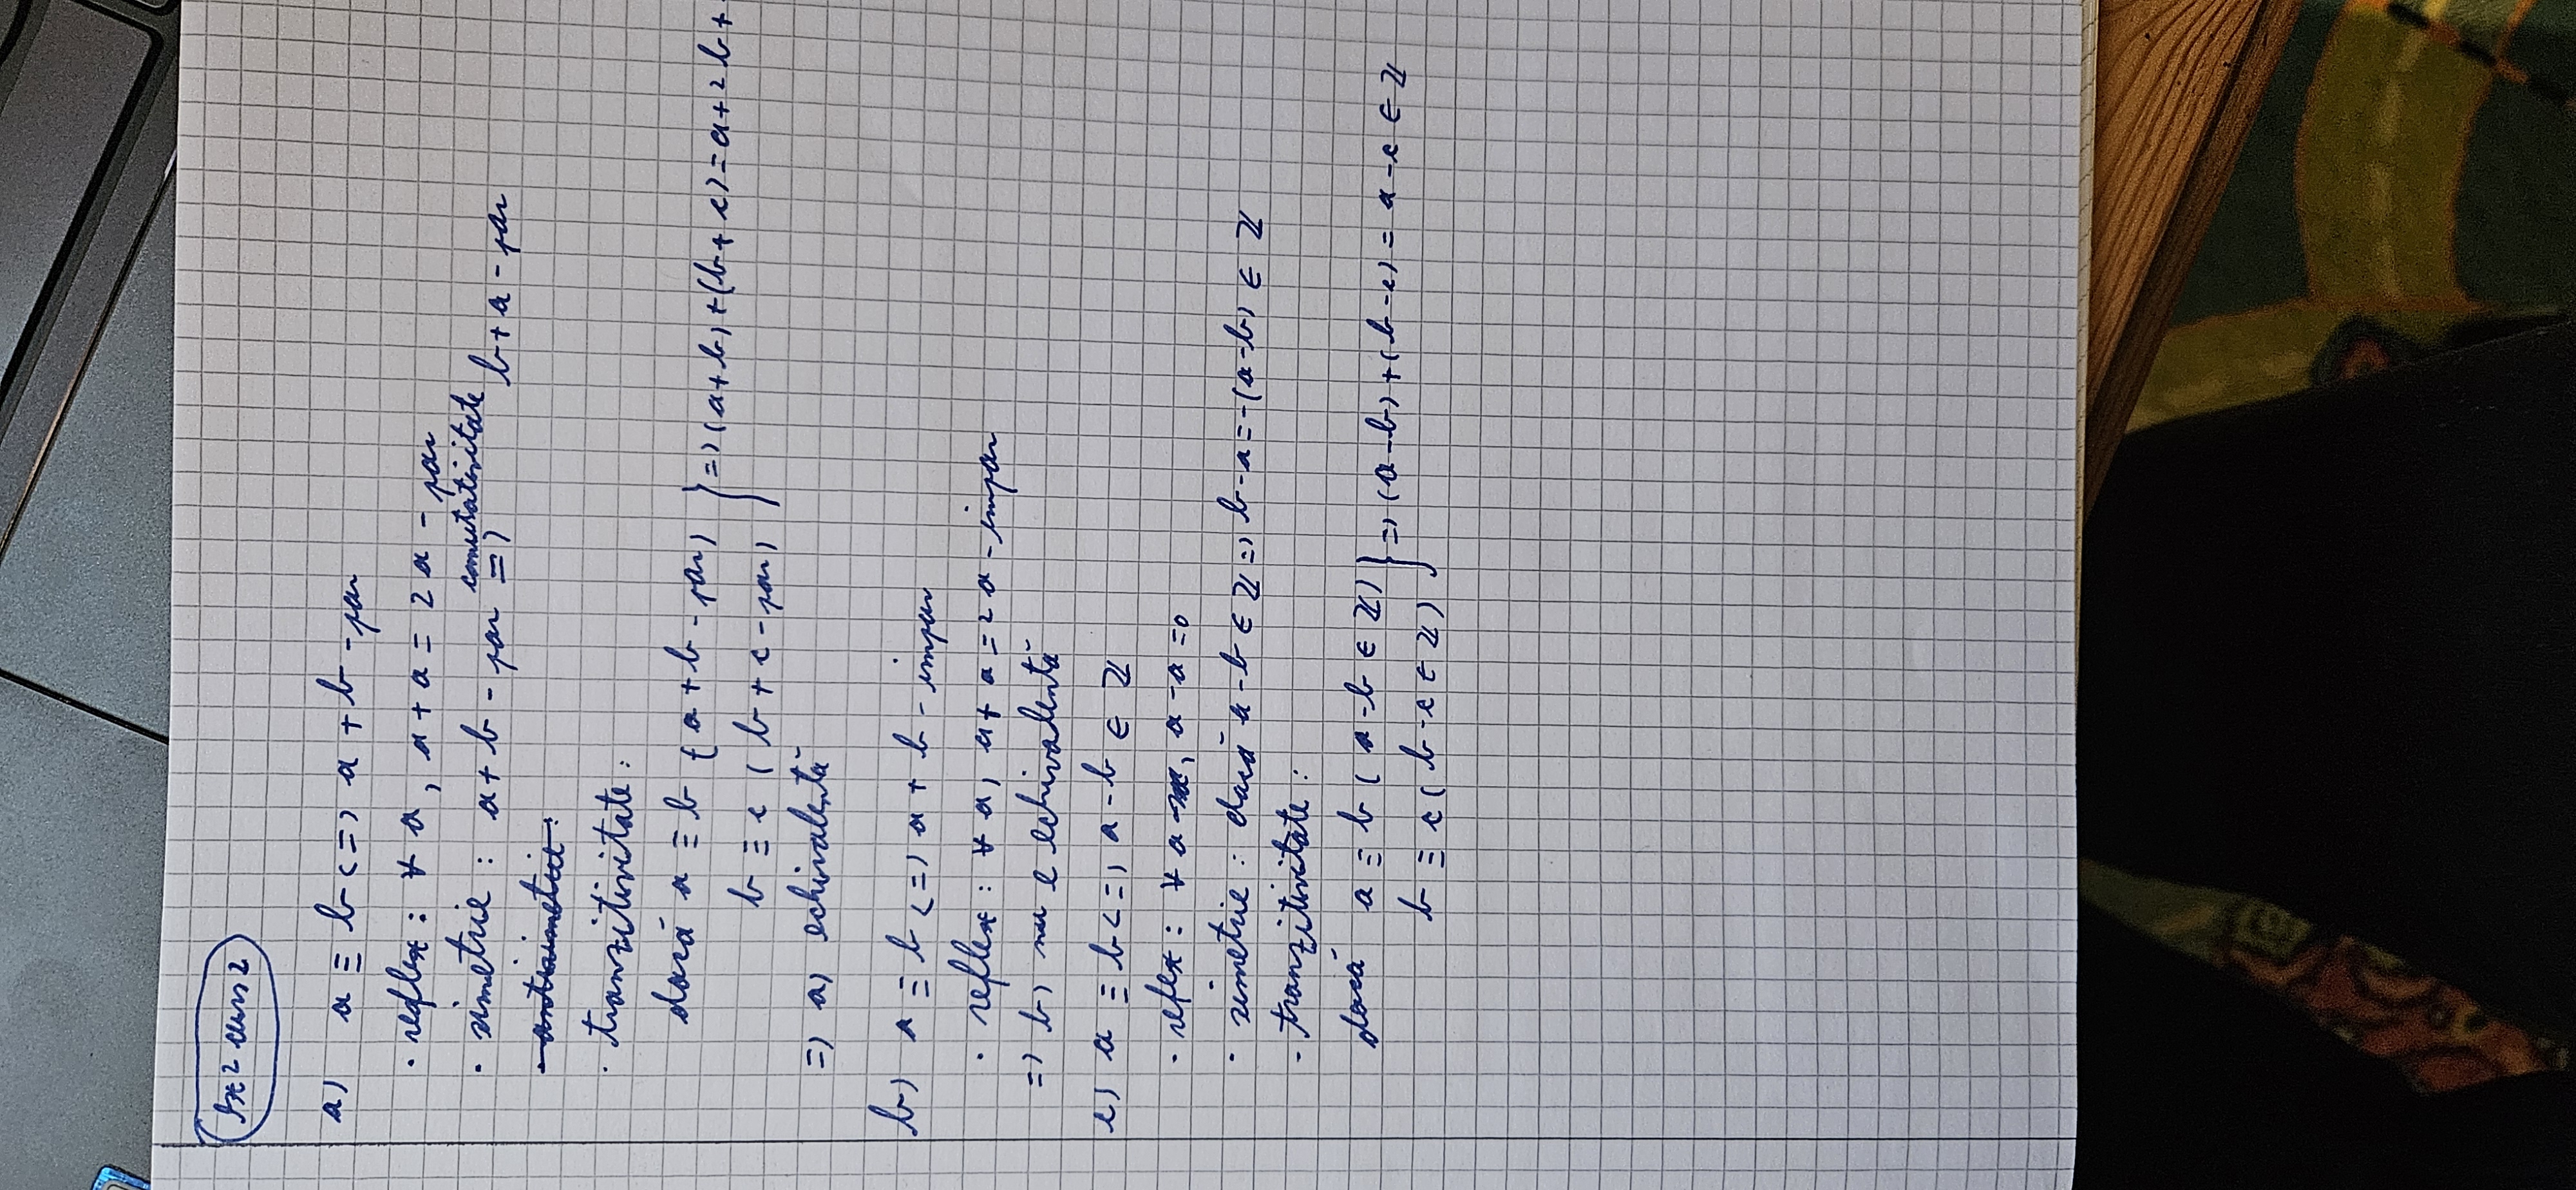 Ex 2 curs 2
a) a ≡ b <=> a + b - par
· reflex: ∀ a, a + a = 2a - par
· simetrie: a + b - par =) comutativitate b + a - par
· antisimetrie:
· tranzitivitate:
dacă a ≡ b (a + b - par) } =) (a+b) + (b+c) = a + 2b +
b ≡ c (b + c - par)
=) a) echivalentă
b) a ≡ b <=> a + b - impar
· reflex: ∀ a, a + a = 2a - impar
=) b) nu e echivalentă
c) a ≡ b <=> a - b ∈ ℤ
· reflex: ∀ a, a - a = 0
· simetrie: dacă a - b ∈ ℤ => b - a = -(a-b) ∈ ℤ
- tranzitivitate:
dacă a ≡ b (a - b ∈ ℤ) } => (a-b) + (b-c) = a - c ∈ ℤ
b ≡ c (b - c ∈ ℤ)